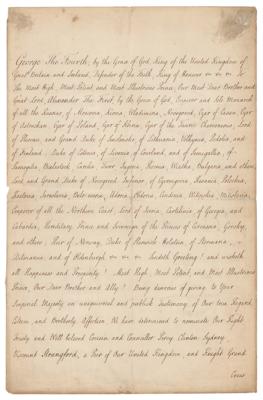 George The Fourth, by the Grace of God, King of the United Kingdom of
Great Britain and Ireland, Defender of the Faith, King of Hanover &c &c &c To
The Most High, Most Potent and Most Illustrious Prince, Our Most Dear Brother and
Great Lord, Alexander The First, by the Grace of God, Emperor and Sole Monarch
of all the Russias of Moscovia, Kiovia, Wladimiria, Novogorod, Czar of Casan, Czar
of Astrachan, Czar of Poland, Czar of Siberia, Czar of the Tauric Chersonesus, Lord
of Plescau, and Grand Duke of Smolensko of Lithuania, Volhynia, Podolia, and
of Finland; Duke of Estonia, of Livonia, of Courland, and of Semigallia, of
Samogitia, Bialostock, Carelia, Twer, Iugoria, Permia, Wiatka, Bulgaria and others
Lord and Grand Duke of Novogorod Inferior, of Czernigovia,
Rostovia, Jaroslavia, Belo-osero, Udoria, Obdoria, Condinia, Witepskia, Mstislavia,
Emperor of all the Northern Coast, Lord of Iveria, Cartalinia, of Georgia, and
Cabardia, Hereditary Prince and Sovereign of the Princes of Circassia, Gorsky,
and others; Heir of Norway, Duke of Sleswick Holstein, of Stormaria, of
Ditmarsia, and of Oldenburgh &c &c &c Sendeth Greeting! and wisheth
all Happiness and Prosperity! Most High, Most Potent, and Most Illustrious
Prince, Our Dear Brother and Ally! Being desirous of giving to Your
Imperial Majesty an unequivocal and publick testimony of Our true Regard,
Esteem, and Brotherly Affection, We have determined to nominate Our Right
Trusty and Well beloved Cousin and Councillor Percy Clinton Sydney,
Viscount Strangford, a Peer of Our United Kingdom, and Knight Grand
Cross